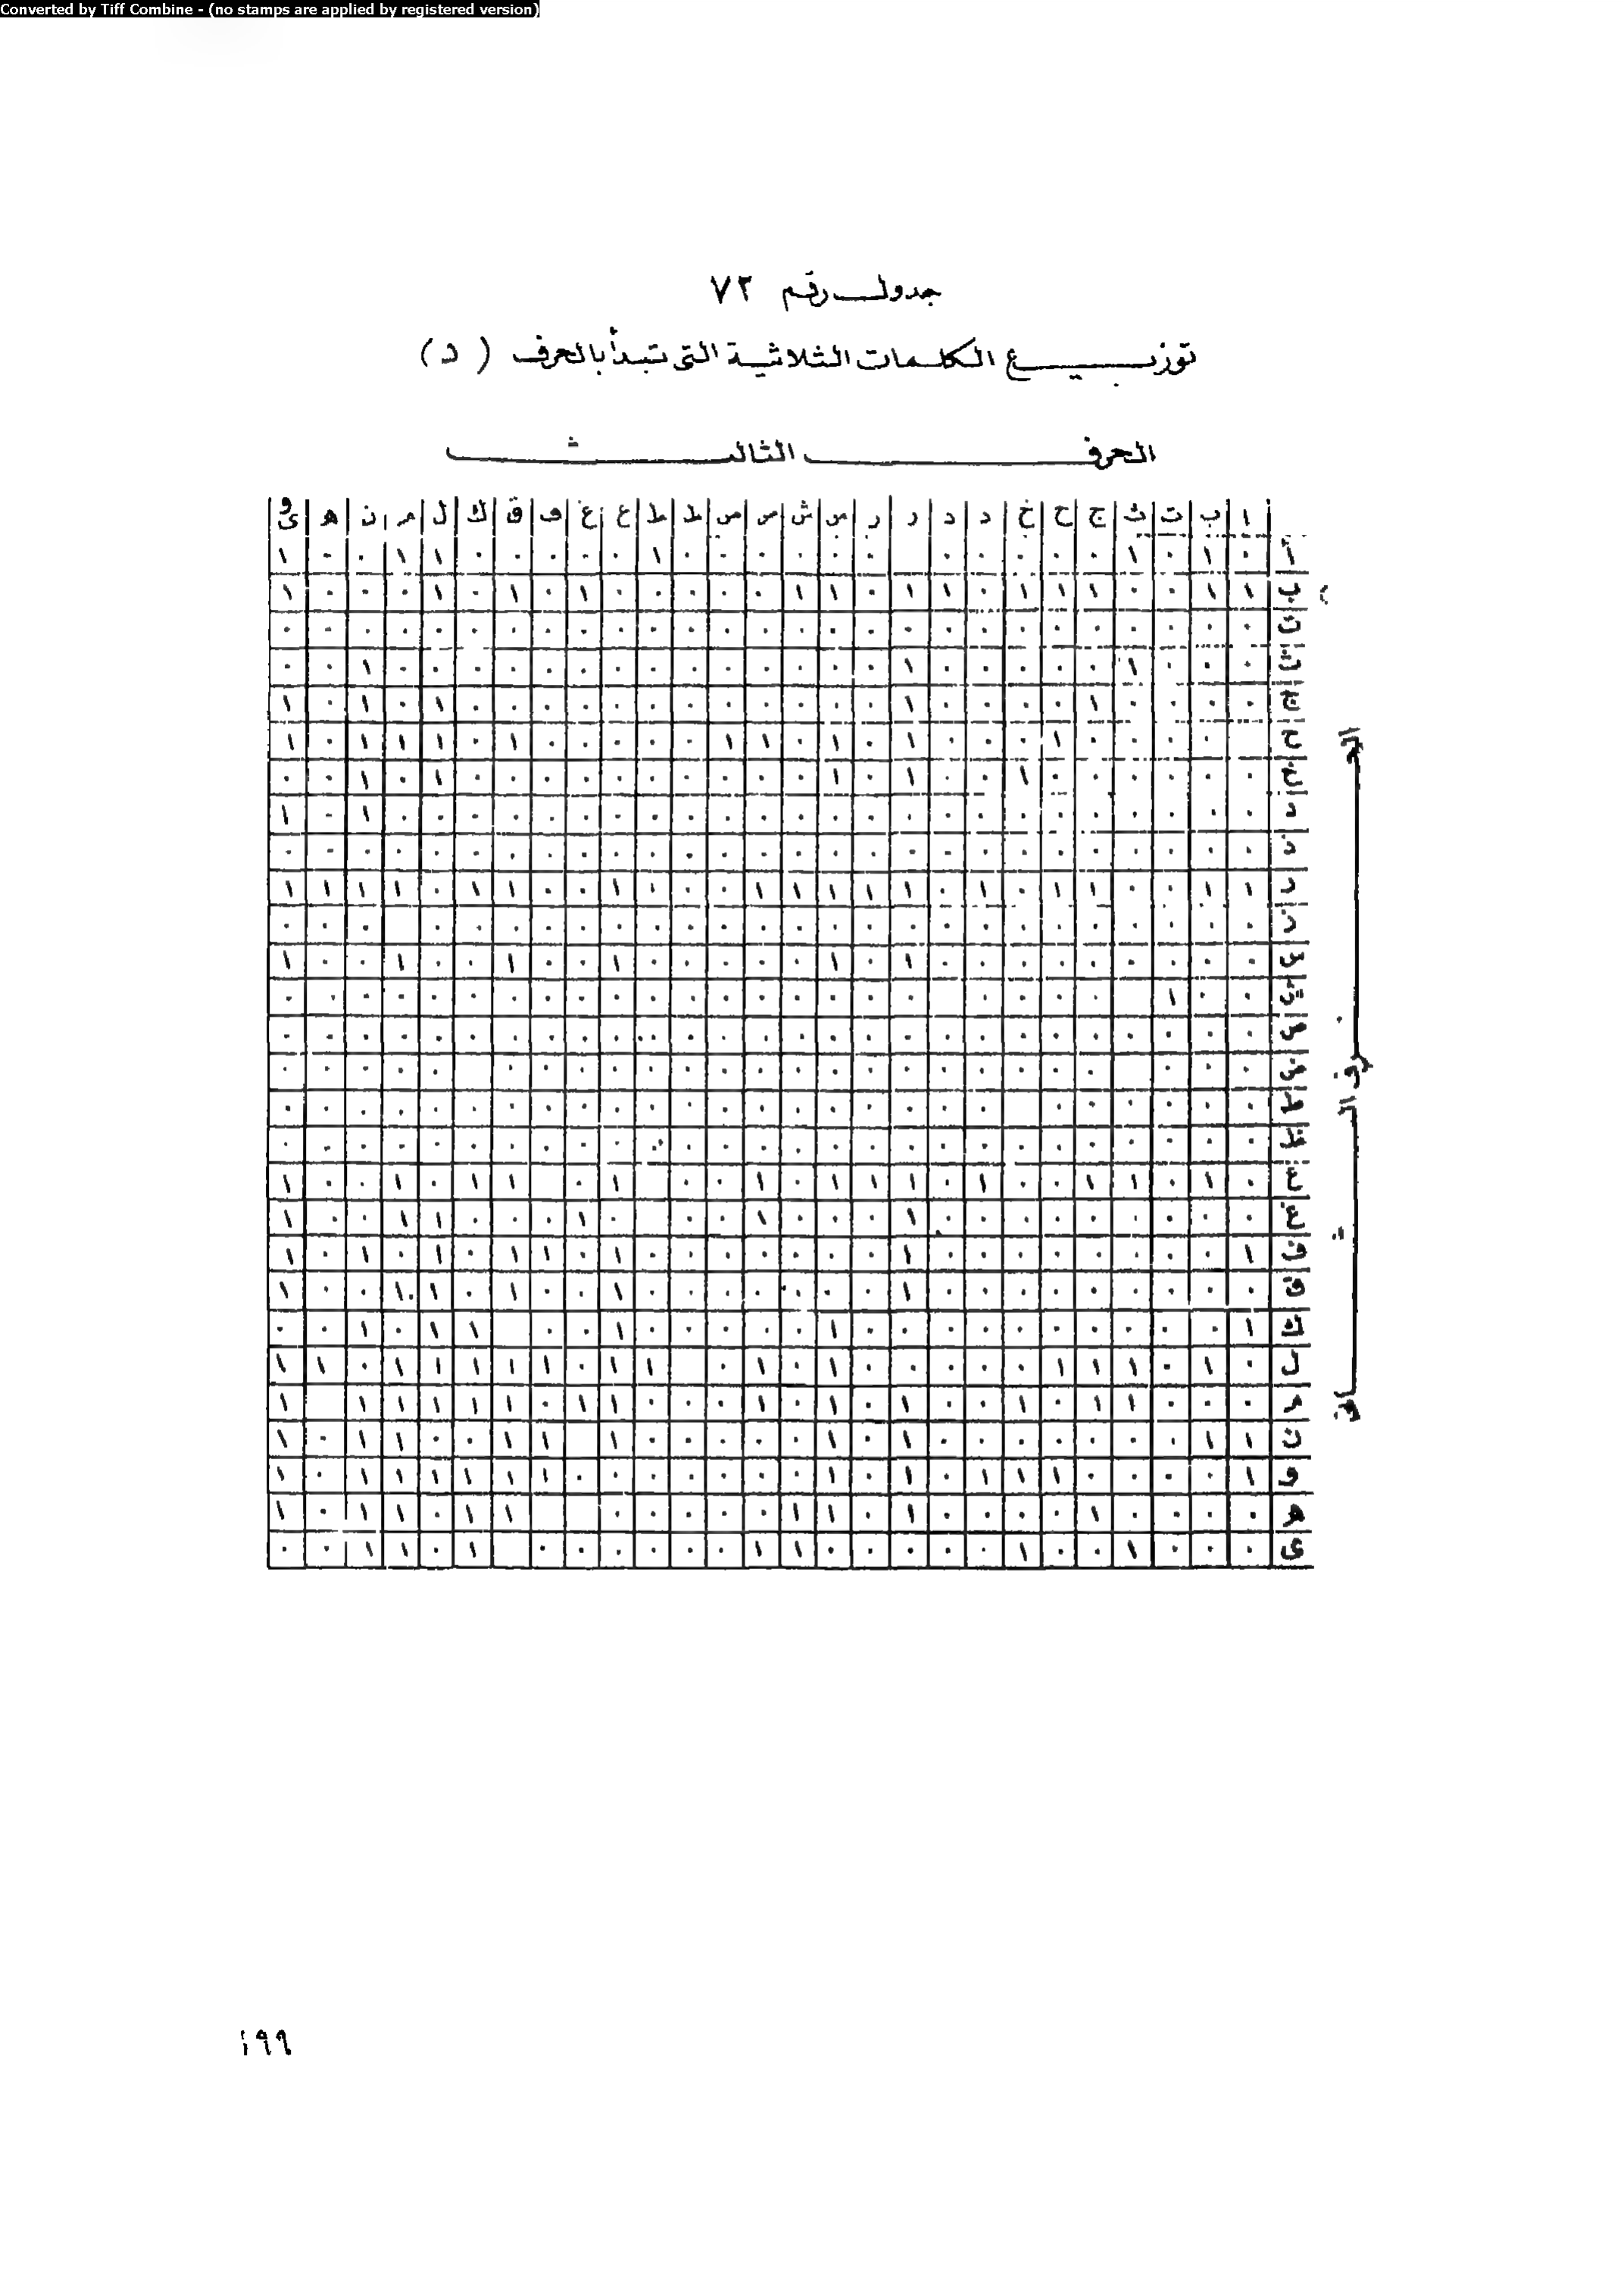 جدول رقم ٧٢
توزيع الكلمات الثلاثية التى تبدأ بالحرف ( د )
الحرف الثالث
ا ب ت ث ج ح خ د د ر ر س ش ص ص ط ط ع غ ف ق ك ل م ن ه و ى
أ ٠ ١ ٠ ١ ٠ ٠ ٠ ٠ ٠ ٠ ٠ ٠ ٠ ٠ ٠ ١ ٠ ٠ ٠ ٠ ٠ ١ ١ ٠ ٠ ١
ب ١ ١ ٠ ٠ ١ ١ ١ ٠ ١ ١ ٠ ١ ١ ٠ ٠ ٠ ٠ ٠ ١ ٠ ١ ٠ ١ ٠ ٠ ٠ ١
ت ٠ ٠ ٠ ٠ ٠ ٠ ٠ ٠ ٠ ٠ ٠ ٠ ٠ ٠ ٠ ٠ ٠ ٠ ٠ ٠ ٠ ٠ ٠ ٠ ٠ ٠ ٠
ث ٠ ٠ ٠ ١ ٠ ٠ ٠ ٠ ٠ ١ ٠ ٠ ٠ ٠ ٠ ٠ ٠ ٠ ٠ ٠ ٠ ٠ ٠ ٠ ١ ٠ ٠
ج ٠ ٠ ٠ ٠ ١ ٠ ٠ ٠ ٠ ١ ٠ ٠ ٠ ٠ ٠ ٠ ٠ ٠ ٠ ٠ ٠ ٠ ١ ٠ ١ ٠ ١
ح ٠ ٠ ٠ ٠ ١ ٠ ٠ ٠ ١ ٠ ١ ٠ ١ ١ ٠ ٠ ٠ ٠ ٠ ١ ٠ ١ ١ ١ ٠ ١
خ ٠ ٠ ٠ ٠ ٠ ٠ ١ ٠ ٠ ١ ٠ ١ ٠ ٠ ٠ ٠ ٠ ٠ ٠ ٠ ٠ ٠ ١ ٠ ١ ٠ ٠
د ٠ ٠ ٠ ٠ ٠ ٠ ٠ ٠ ٠ ٠ ٠ ٠ ٠ ٠ ٠ ٠ ٠ ٠ ٠ ٠ ٠ ٠ ٠ ٠ ١ ٠ ١
ذ ٠ ٠ ٠ ٠ ٠ ٠ ٠ ٠ ٠ ٠ ٠ ٠ ٠ ٠ ٠ ٠ ٠ ٠ ٠ ٠ ٠ ٠ ٠ ٠ ٠ ٠ ٠
ر ١ ١ ٠ ٠ ١ ١ ٠ ١ ٠ ١ ١ ١ ١ ١ ٠ ٠ ٠ ١ ٠ ٠ ١ ١ ٠ ١ ١ ١ ١
ز ٠ ٠ ٠ ٠ ٠ ٠ ٠ ٠ ٠ ٠ ٠ ٠ ٠ ٠ ٠ ٠ ٠ ٠ ٠ ٠ ٠ ٠ ٠ ٠ ٠ ٠
س ٠ ٠ ٠ ٠ ٠ ٠ ٠ ٠ ٠ ١ ٠ ١ ٠ ٠ ٠ ٠ ٠ ١ ٠ ٠ ١ ٠ ٠ ١ ٠ ٠ ١
ش ٠ ٠ ١ ٠ ٠ ٠ ٠ ٠ ٠ ٠ ٠ ٠ ٠ ٠ ٠ ٠ ٠ ٠ ٠ ٠ ٠ ٠ ٠ ٠ ٠
ص ٠ ٠ ٠ ٠ ٠ ٠ ٠ ٠ ٠ ٠ ٠ ٠ ٠ ٠ ٠ ٠ ٠ ٠ ٠ ٠ ٠ ٠ ٠ ٠ ٠ ٠ ٠
ض ٠ ٠ ٠ ٠ ٠ ٠ ٠ ٠ ٠ ٠ ٠ ٠ ٠ ٠ ٠ ٠ ٠ ٠ ٠ ٠ ٠ ٠ ٠ ٠ ٠
ط ٠ ٠ ٠ ٠ ٠ ٠ ٠ ٠ ٠ ٠ ٠ ٠ ٠ ٠ ٠ ٠ ٠ ٠ ٠ ٠ ٠ ٠ ٠ ٠ ٠ ٠
ظ ٠ ٠ ٠ ٠ ٠ ٠ ٠ ٠ ٠ ٠ ٠ ٠ ٠ ٠ ٠ ٠ ٠ ٠ ٠ ٠ ٠ ٠ ٠ ٠ ٠ ٠ ٠
ع ٠ ١ ٠ ١ ١ ٠ ٠ ١ ٠ ١ ١ ١ ٠ ١ ٠ ٠ ١ ٠ ١ ١ ٠ ١ ٠ ٠ ١
غ ٠ ٠ ٠ ٠ ٠ ٠ ٠ ٠ ٠ ١ ٠ ٠ ٠ ١ ٠ ٠ ٠ ١ ٠ ٠ ٠ ١ ١ ٠ ٠ ١
ف ١ ٠ ٠ ٠ ٠ ٠ ٠ ٠ ٠ ١ ٠ ٠ ٠ ٠ ٠ ٠ ٠ ١ ٠ ١ ١ ٠ ١ ٠ ١ ٠ ١
ق ٠ ٠ ٠ ٠ ٠ ٠ ٠ ٠ ٠ ١ ٠ ٠ ٠ ٠ ٠ ٠ ٠ ١ ٠ ٠ ١ ٠ ١ ١ ٠ ٠ ١
ك ١ ٠ ٠ ٠ ٠ ٠ ٠ ٠ ٠ ٠ ٠ ١ ٠ ٠ ٠ ٠ ٠ ١ ٠ ٠ ١ ١ ٠ ١ ٠ ٠
ل ٠ ١ ٠ ١ ١ ١ ٠ ٠ ٠ ٠ ٠ ١ ٠ ١ ٠ ١ ١ ٠ ١ ١ ١ ١ ١ ٠ ١ ١
م ٠ ٠ ٠ ١ ١ ٠ ١ ٠ ٠ ١ ٠ ١ ٠ ١ ٠ ٠ ٠ ١ ١ ٠ ١ ١ ١ ١ ١ ١
ن ١ ١ ٠ ٠ ٠ ٠ ٠ ٠ ٠ ١ ٠ ١ ٠ ٠ ٠ ٠ ٠ ١ ١ ١ ٠ ٠ ١ ١ ٠ ١
و ١ ٠ ٠ ٠ ٠ ١ ١ ١ ٠ ١ ٠ ١ ٠ ٠ ٠ ٠ ٠ ٠ ٠ ١ ١ ١ ١ ١ ١ ٠ ١
ه ٠ ٠ ٠ ٠ ١ ٠ ٠ ٠ ٠ ١ ٠ ١ ١ ٠ ٠ ٠ ٠ ٠ ١ ١ ٠ ١ ١ ٠ ١
ى ٠ ٠ ٠ ١ ٠ ٠ ١ ٠ ٠ ٠ ٠ ٠ ١ ١ ٠ ٠ ٠ ٠ ٠ ٠ ١ ٠ ١ ١ ٠ ٠
الحرف الثانى
١٩٩
Converted by Tiff Combine - (no stamps are applied by registered version)